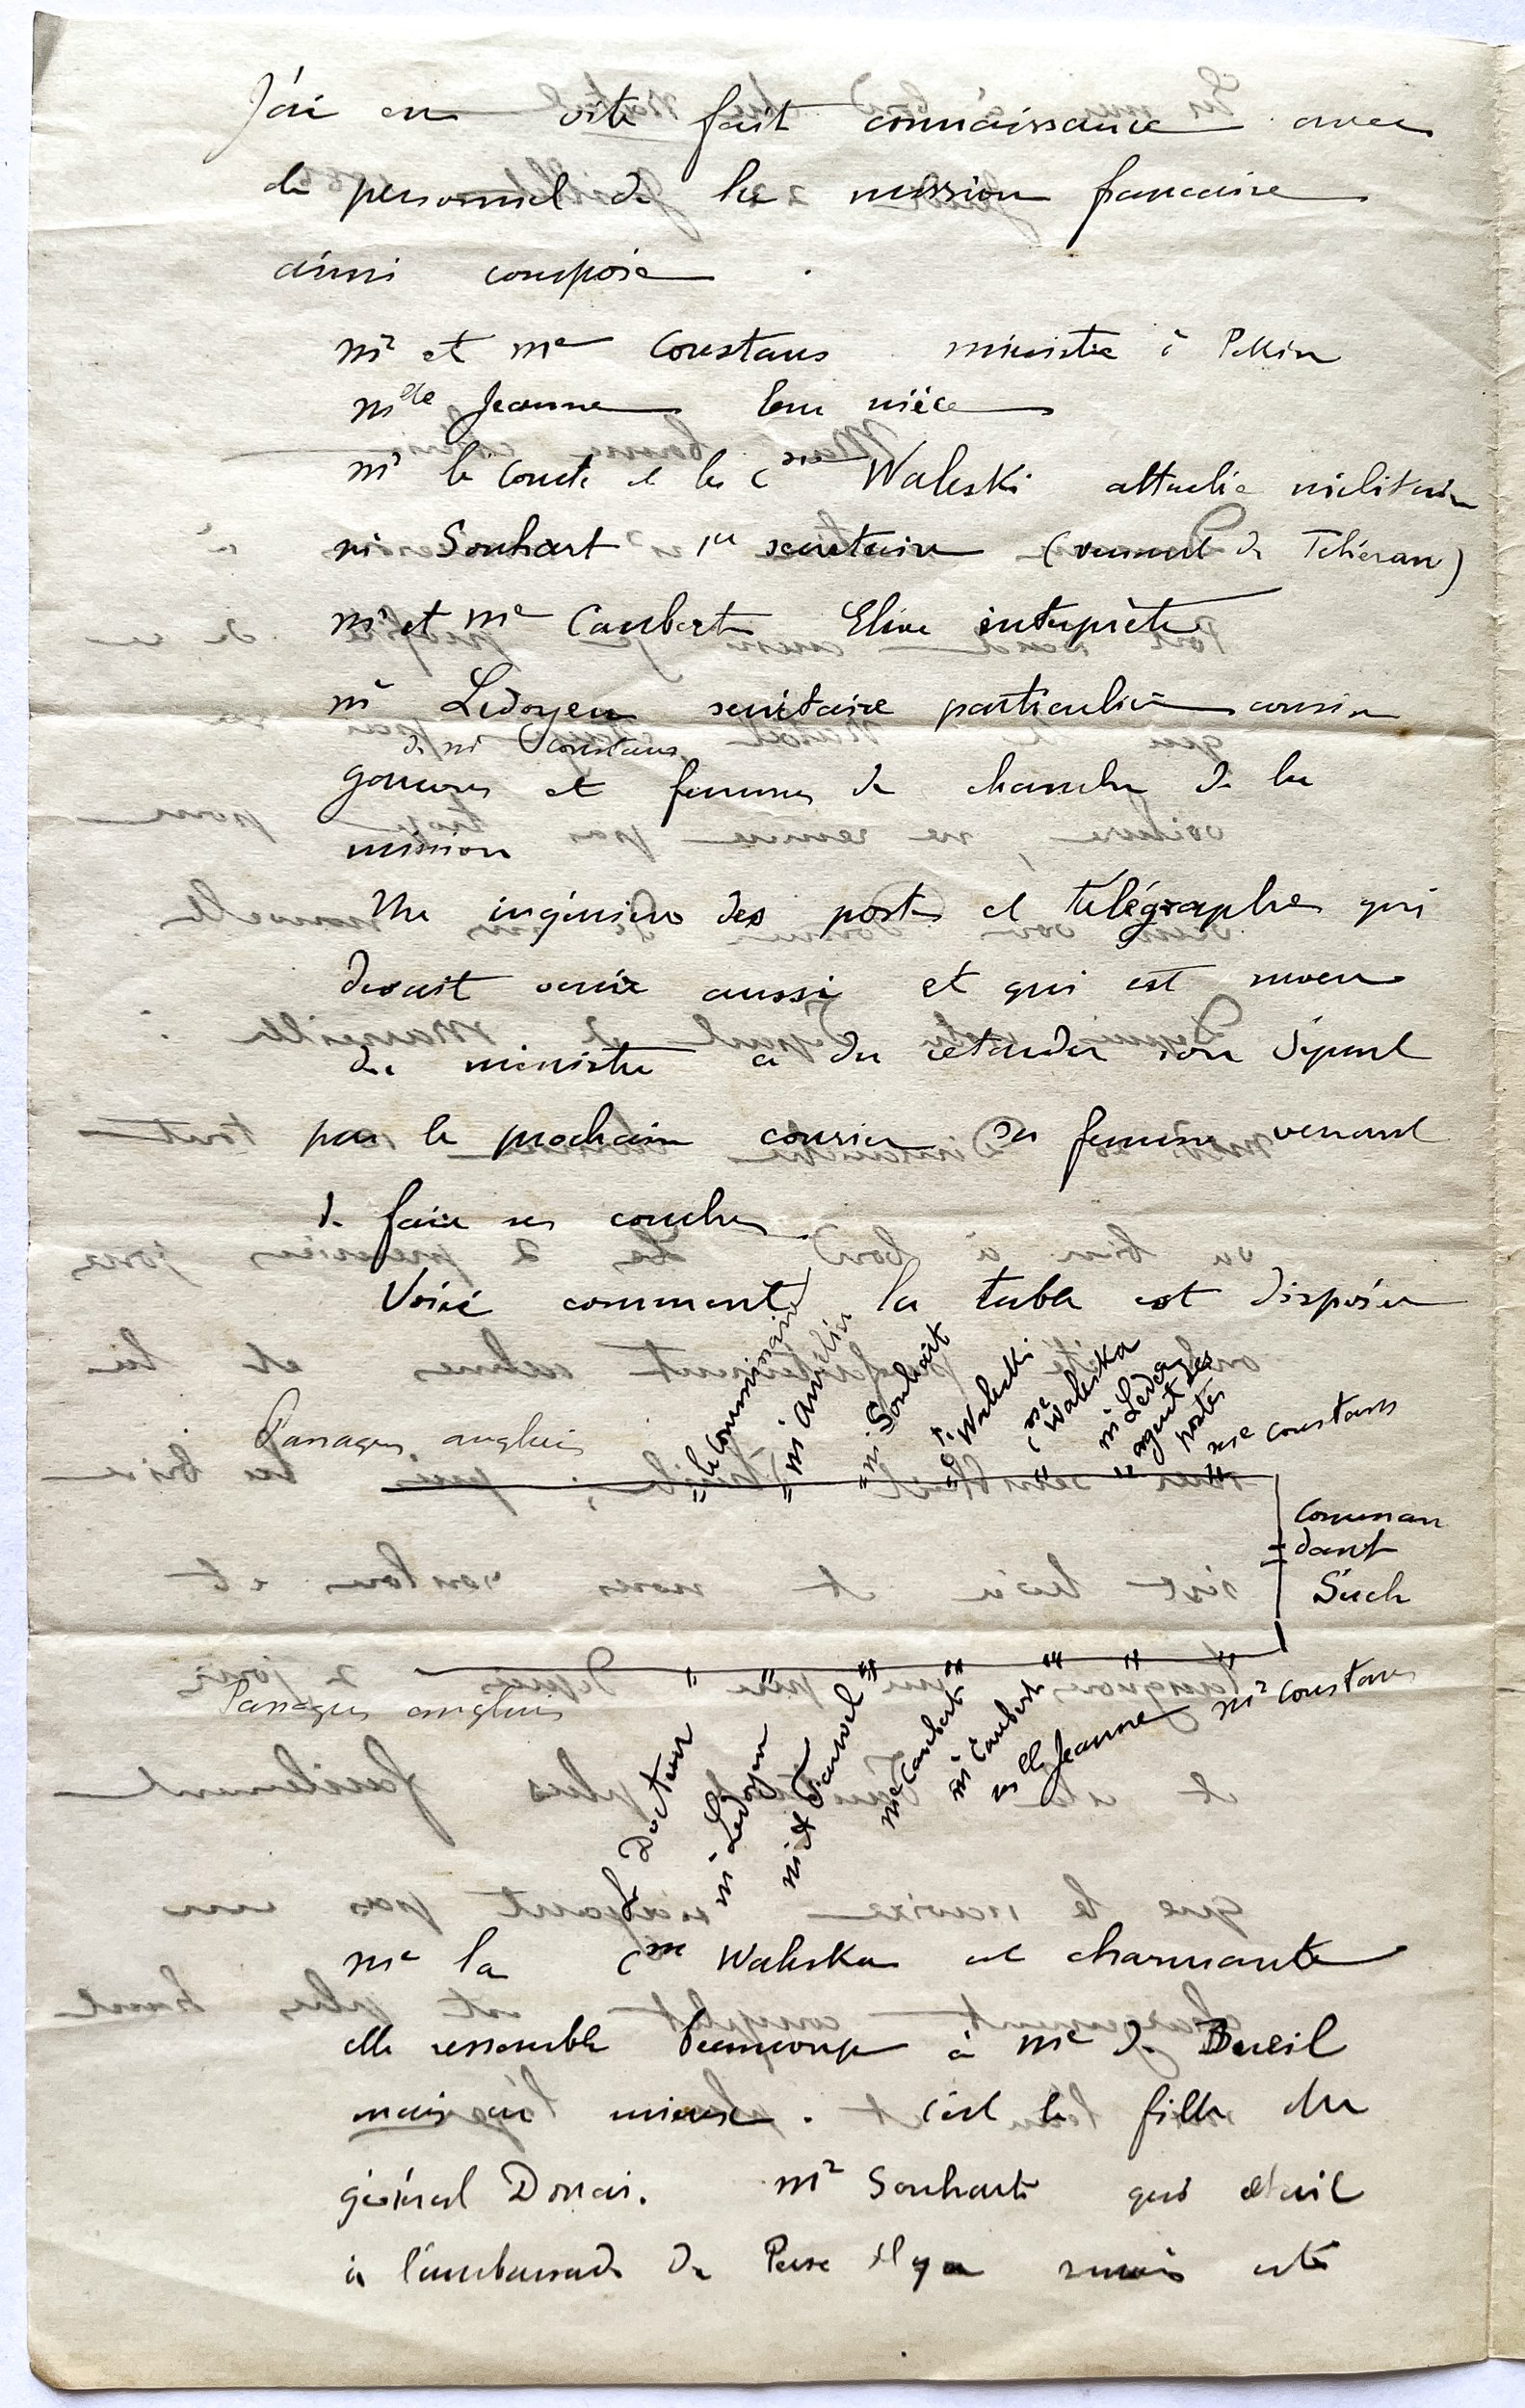 J'ai eu vite fait connaissance avec
le personnel de la mission française
ainsi composée
Mr et Me Constans ministre à Pékin
Mlle Jeanne leur nièce
Mr le Comte et la Csse Waleski attaché militaire
Mr Souhart 1er secrétaire (venant de Téhéran)
Mr et Me Caubert Elève interprète
Mr Ledoyen secrétaire particulier cousin
de Mr Constans
garçons et femmes de chambre de la
mission
Un ingénieur des postes et télégraphes qui
devait venir aussi et qui est neveu
du ministre a du retarder son départ
par le prochain courrier sa femme venant
de faire ses couches
Voici comment la table est disposée
le commissaire
Mr Souhart
Cte Waleski
Csse Waleska
agent des
postes
Me Constans
Passagers anglais
Comman
dant
Such
Passagers anglais
Le Docteur
Mr Ledoyen
Me Caubert
Mr Caubert
Mlle Jeanne
Mr Constans
Me la Csse Waleska est charmante
elle ressemble beaucoup à Me de Bueil
mais en mieux. C'est la fille du
général Douai. Mr Souhart qui était
à l'ambassade de Perse il y a 2 mois est